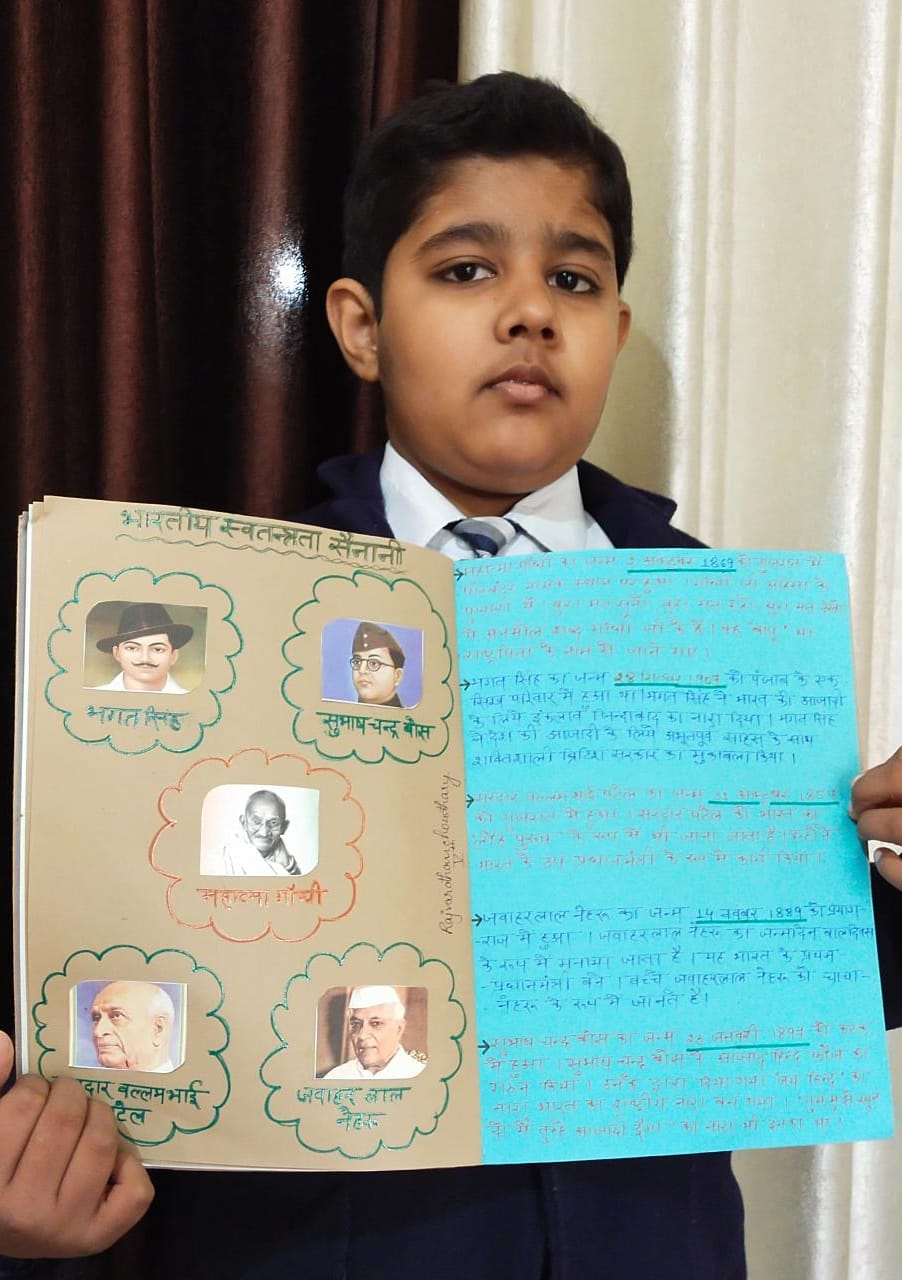 भारतीय स्वतन्त्रता सैनानी
भगत सिंह
सुभाष चन्द्र बोस
महात्मा गाँधी
दार वल्लभभाई
टेल
जवाहर लाल
नेहरू
Rajvardhan choudhary
V
महात्मा गाँधी का जन्म 2 अक्टूबर 1869 को गुजरात में
पोरबंदर नामक स्थान पर हुआ । गाँधी जी अहिंसा के
पुजारी थे । बुरा मत सुनो, बुरा मत कहो, बुरा मत देखो
ये अनमोल शब्द गाँधी जी के हैं । वह 'बापू' या
राष्ट्रपिता के नाम से जाने गए ।
भगत सिंह का जन्म 28 1907 को पंजाब के एक
सिख परिवार में हुआ था । भगत सिंह ने भारत की आजादी
के लिये इंकलाब जिन्दाबाद का नारा दिया । भगत सिंह
ने देश की आजादी के लिये अभूतपूर्व साहस के साथ
शक्तिशाली ब्रिटिश सरकार का मुकाबला किया ।
सरदार वल्लभ भाई पटेल का जन्म 31 अक्टूबर
को गुजरात में हुआ । सरदार पटेल को भारत का
'लौह पुरुष' के रूप में भी जाना जाता है । इन्होंने
भारत के उप प्रधानमंत्री के रूप में कार्य किया ।
जवाहरलाल नेहरू का जन्म 14 नवंबर 1889 को प्रयाग-
राज में हुआ । जवाहरलाल नेहरू का जन्मदिन बालदिवस
के रूप में मनाया जाता है । यह भारत के प्रथम
प्रधानमंत्री बने । बच्चे जवाहरलाल नेहरू को चाचा-
नेहरू के रूप में जानते हैं ।
सुभाष चन्द्र बोस का जन्म 23 जनवरी 1897 को कटक
में हुआ । सुभाष चन्द्र बोस ने आजाद हिन्द फौज का
गठन किया । इनके द्वारा दिया गया 'जय हिन्द' का
नारा भारत का राष्ट्रीय नारा बन गया । 'तुम मुझे खून
दो मैं तुम्हें आजादी दूँगा' का नारा भी इनका था ।